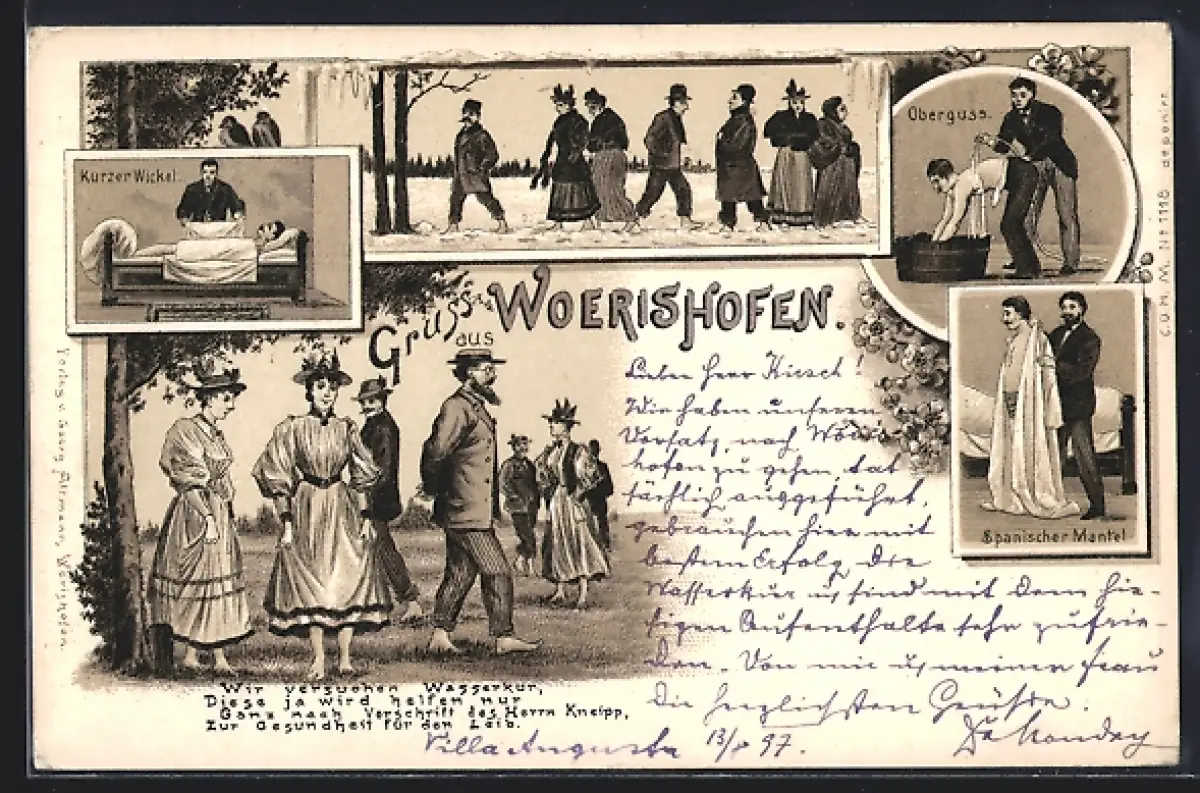 Kurzer Wickel.
Oberguss.
Gruss aus WOERISHOFEN.
Spanischer Mantel
Lieber Herr Hirsch!
Wir haben unseren
Vorsatz, nach Wöris-
hofen zu gehen, tat
sächlich ausgeführt,
gebrauchen hier mit
bestem Erfolg die
Wasserkur u. sind mit dem hie-
sigen Aufenthalte sehr zufrie-
den. Von mir u. meiner Frau
die herzlichsten Grüsse.
Wir versuchen Wasserkur,
Diese ja wird helfen nur
Ganz nach Vorschrift des Herrn Kneipp,
Zur Gesundheit für den Leib.
Villa Augusta 97.
Verlag v. Georg Wörishofen.
Nº 1118 deponirt